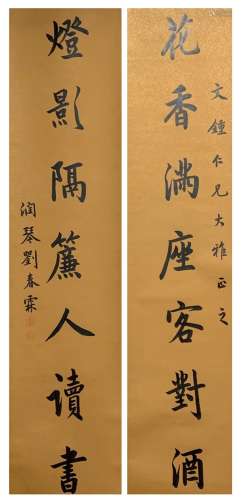 花香满座客對酒
文鍾仁兄大雅正之
燈影隔簾人读書
润琴劉春霖